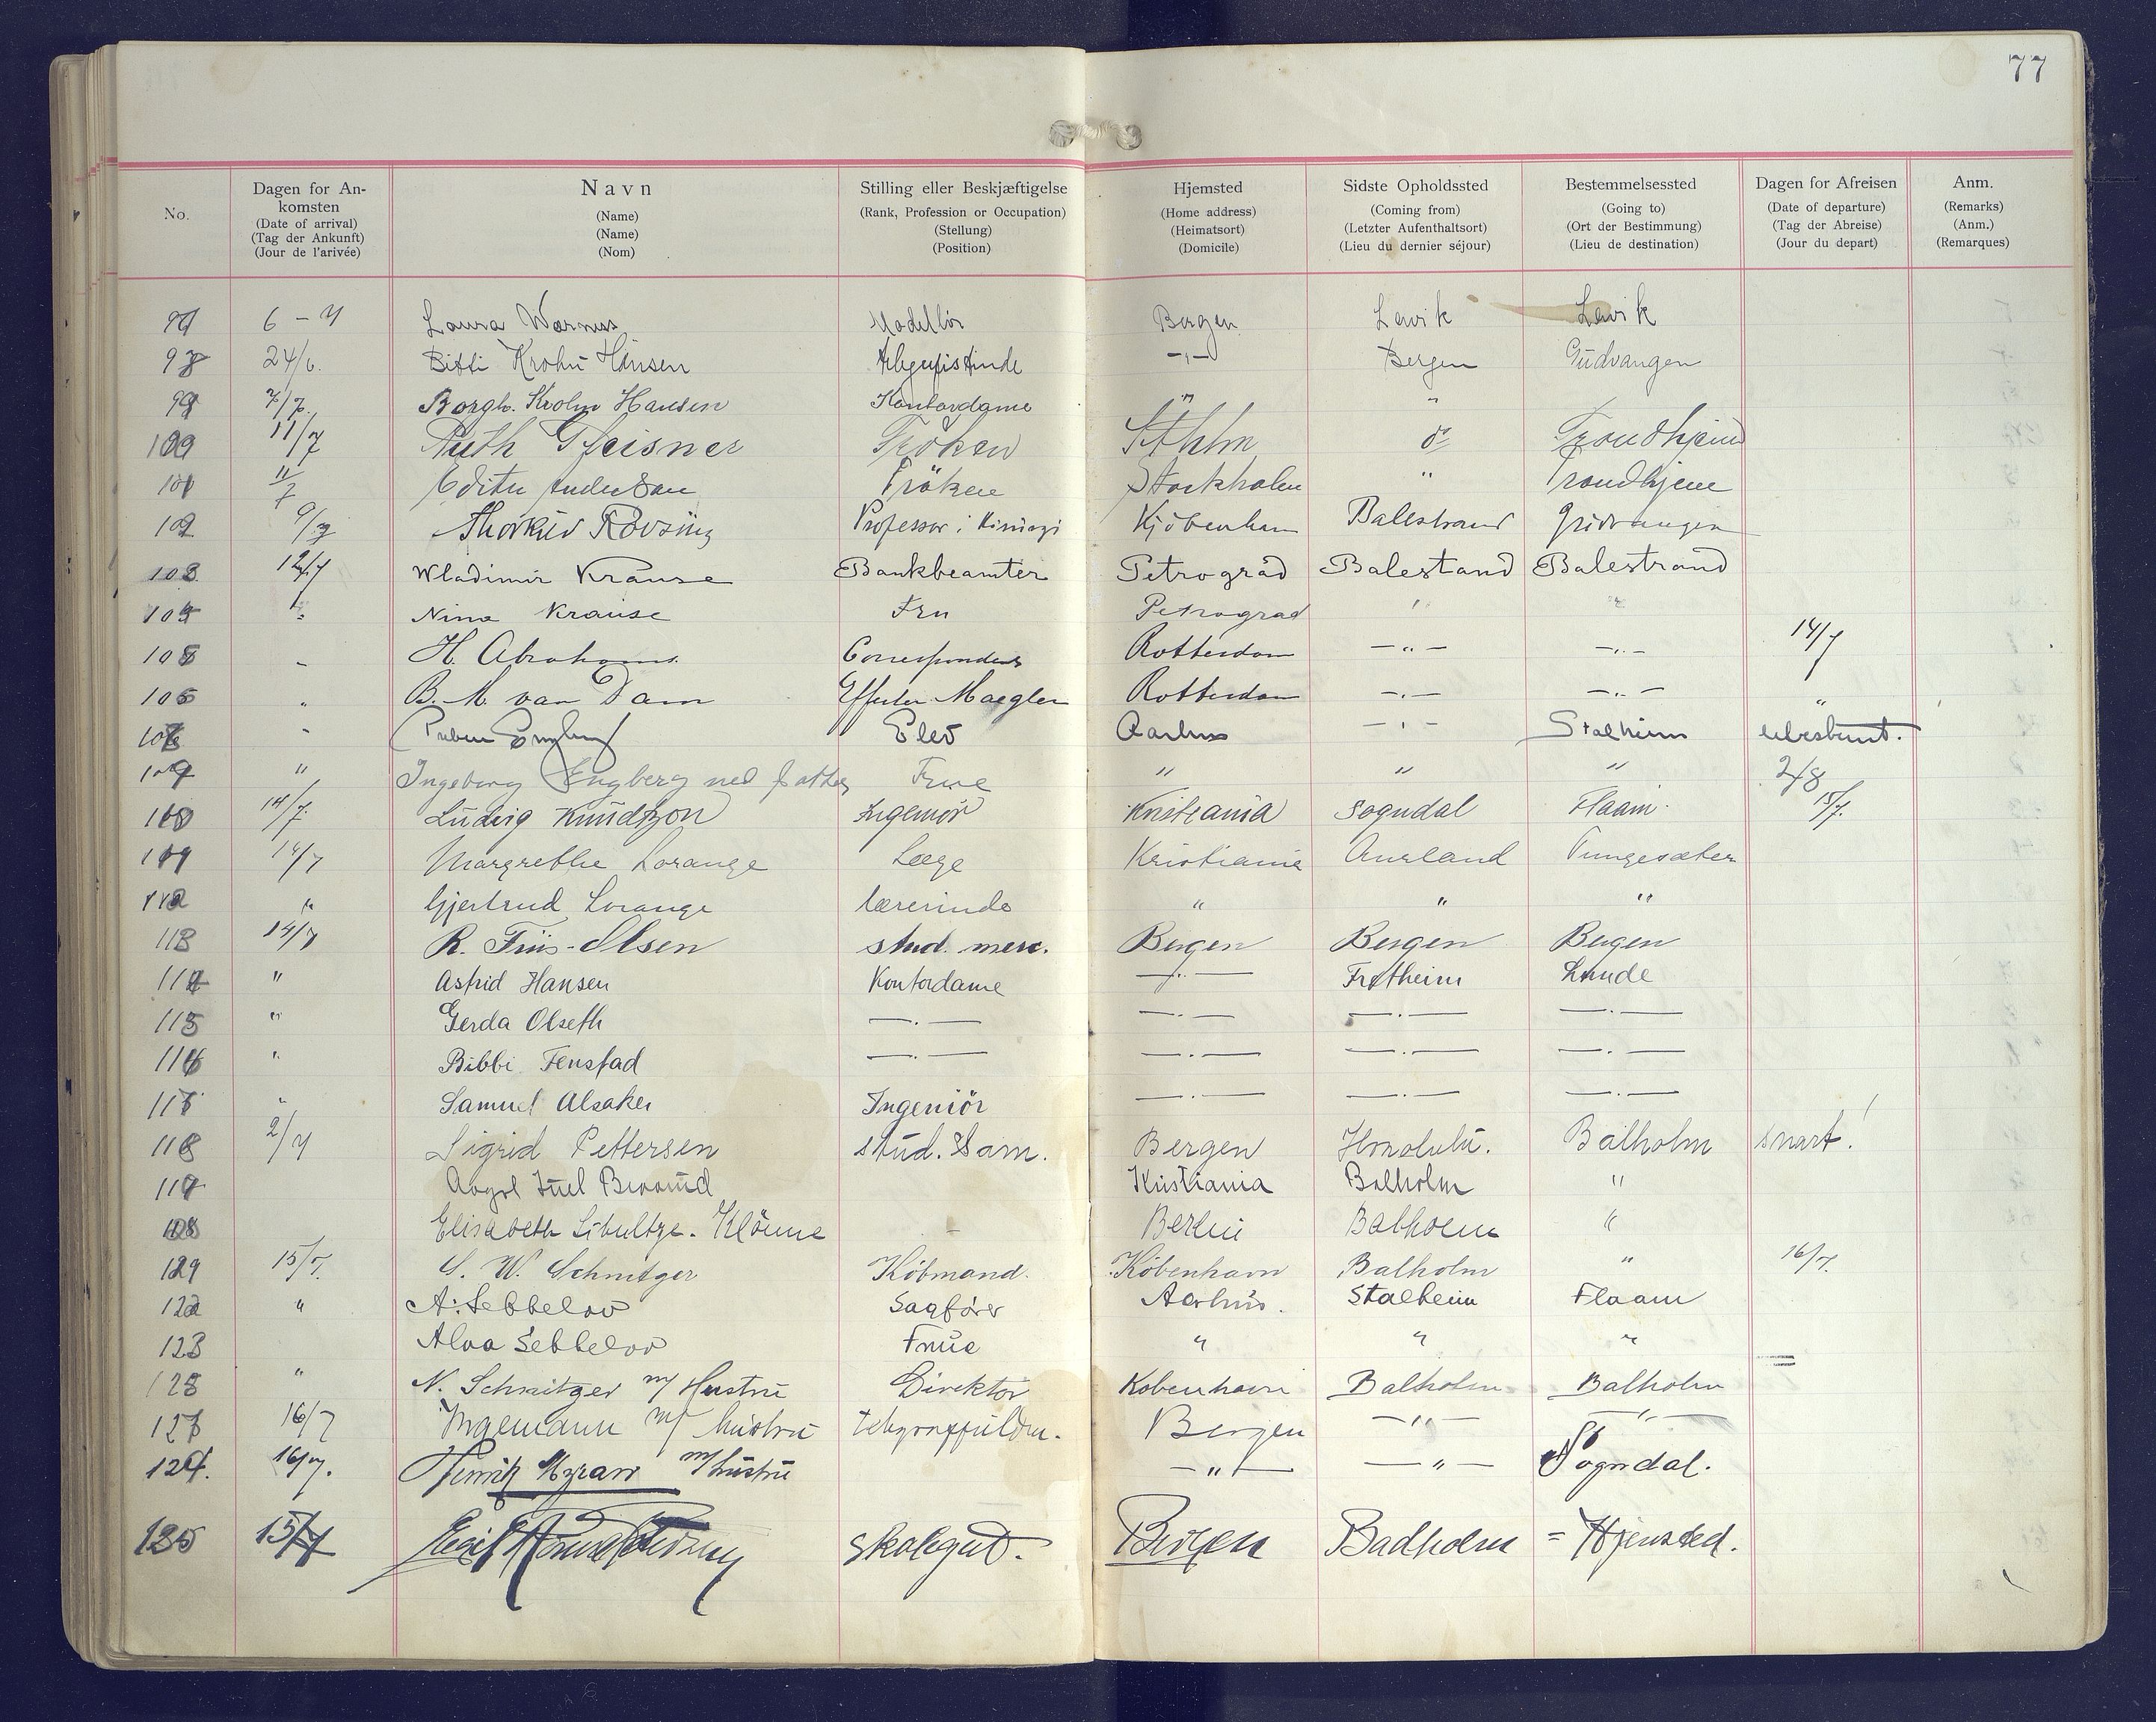 77
No.
Dagen for An-
komsten
(Date of arrival)
(Tag der Ankunft)
(Jour de l'arivée)
Navn
(Name)
(Name)
(Nom)
Stilling eller Beskjæftigelse
(Rank, Profession or Occupation)
(Stellung)
(Position)
Hjemsted
(Home address)
(Heimatsort)
(Domicile)
Sidste Opholdssted
(Coming from)
(Letzter Aufenthaltsort)
(Lieu du dernier séjour)
Bestemmelsessted
(Going to)
(Ort der Bestimmung)
(Lieu de destination)
Dagen for Afreisen
(Date of departure)
(Tag der Abreise)
(Jour du depart)
Anm.
(Remarks)
(Anm.)
(Remarques)
Laura Bergen Lavik Lavik
24/6. Krohn Hansen -"- Bergen Gudvangen
7/7. Borgh. Krohn Hansen Kontordame " "
11/7 Ruth Fröken Sthlm do Trondhjem
11/7 Fröken Stockholm " Trondhjem
102 9/7 Thorkild Rovsing Professor i Kirurgi Kjöbenhavn Balestrand Gudvangen
103. 12/7 Wladimir Krause Bankbeamter Petrograd Balestand Balestrand
104 " Nina Krause Fru Petrograd " "
105 " H. Abrahams. Correspondent Rotterdam -"- -"- 14/7
106 " B. M. van Dam Effecten Maegler Rotterdam -"- -"- "
" Preben Engberg Elev Aarhus -"- Stalheim ubestemt.
" Ingeborg Engberg Frue " " " 2/8
14/7. Ludvig Knudtzon Ingeniör Kristiania Sogndal Flaam. 15/7.
14/7 Margrethe Lorange Læge Kristiania Aurland Tungesæter
" Gjertrud Lorange lærerinde " " "
113 14/7 R. Friis-Olsen stud. merc. Bergen Bergen Bergen
114 " Astrid Hansen Kontordame -"- Fretheim Lunde
115 " Gerda Olseth -"- -"- -"- -"-
116 " Bibbi Fenstad -"- -"- -"- -"-
117 " Samuel Alsaker Ingeniör -"- -"- -"-
118 2/7 Sigrid Pettersen stud. Sam. Bergen Honolulu. Balholm snart!
119 Juel Kristiania Balholm "
Elisabeth Schultze-Klönne - Berlin Balholm "
15/7. S. W. Schnitger Köbmand. København Balholm " 16/7.
122 " A. Sebbelov Sagfører Aarhus. Stalheim Flaam
123 Sebbelov Frue " " "
" N. Schnitger m/ Hustru Direktör København Balholm Balholm
16/7 Ingemann m/ hustru Bergen -"- -"-
124. 16/7. Henrik m/hustru -"- -"- Sogndal.
15/7 Skolegut. Bergen Badholm = Hjemsted.